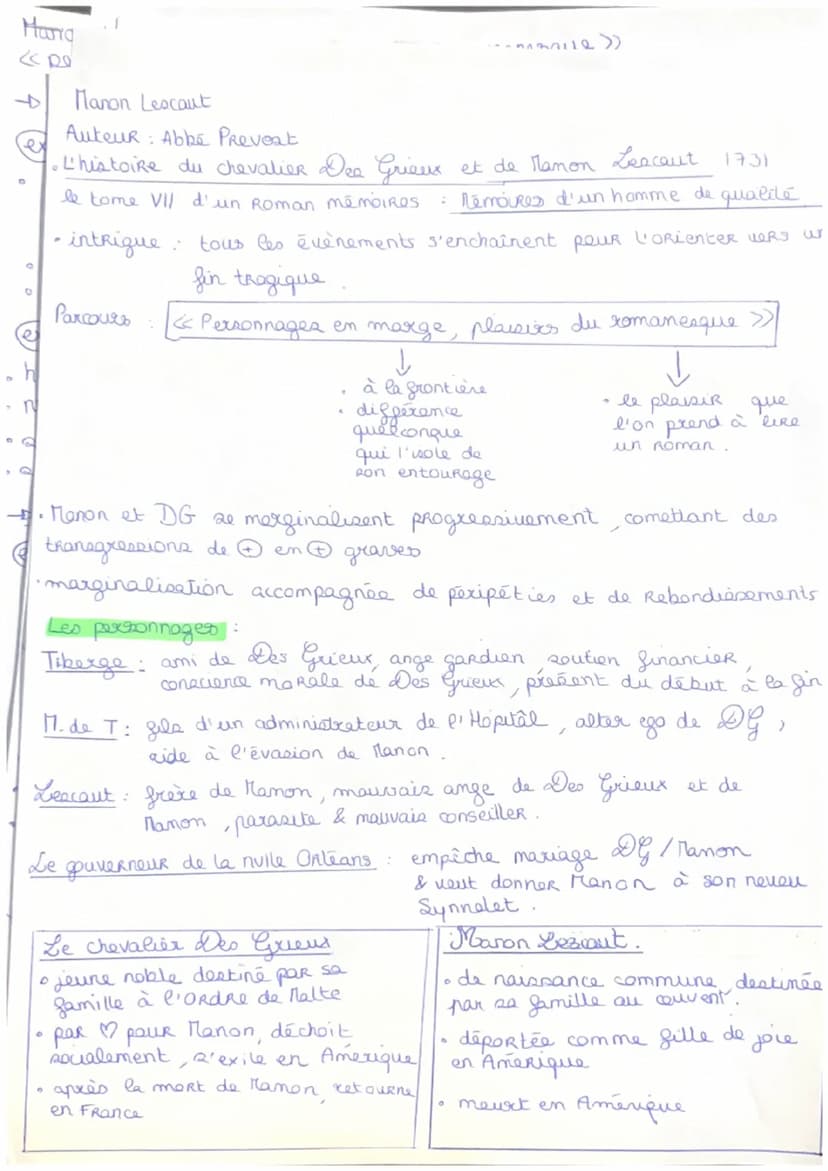 Manon Lescaut
Auteur : Abbé Prevost
. L'histoire du chevalier Des Grieux et de Manon Lescaut 1731
le tome VII d'un Roman mémoires : Mémoires d'un homme de qualité
• intrigue : tous les évènements s'enchaînent pour l'orienter vers
fin tragique.
Parcours : << Personnages en marge, plaisirs du romanesque >>
. à la frontière
. différence
quelconque
qui l'isole de
son entourage
• le plaisir que
l'on prend à lire
un roman.
. Manon et DG se marginalisent progressivement, comettant des
transgressions de + en + graves
• marginalisation accompagnée de péripéties et de Rebondissements
Les personnages :
Tiberge : ami de Des Grieux, ange gardien, soutien financier,
conscience morale de Des Grieux, présent du début à la fin
M. de T : fils d'un administrateur de l'Hôpital, alter ego de DG,
aide à l'évasion de Manon.
Lescaut : frère de Manon, mauvais ange de Des Grieux et de
Manon, parasite & mauvais conseiller.
Le gouverneur de la nvlle Orléans : empêche mariage DG / Manon
& veut donner Manon à son neveu
Synnelet.
Le chevalier Des Grieux
• jeune noble destiné par sa
famille à l'Ordre de Malte
• par ♡ pour Manon, déchoit
socialement, s'exile en Amérique
• après la mort de Manon, retourne
en France
Manon Lescaut.
• de naissance commune, destinée
par sa famille au couvent.
• déportée comme fille de joie
en Amérique
• meurt en Amérique